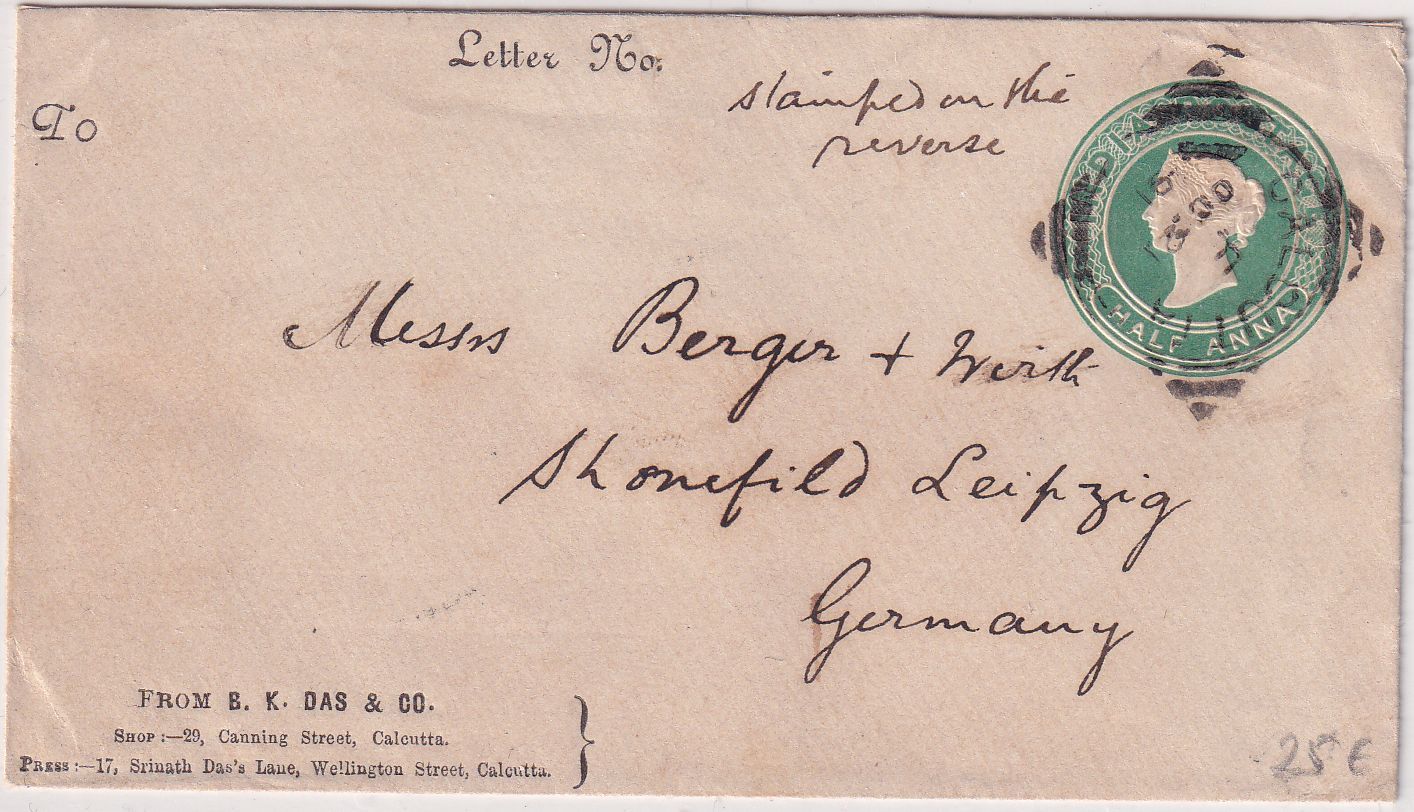 Letter No.
To
stamped on the
reverse
INDIA POSTAGE
HALF ANNA
CALCUTTA
Messrs Berger + Wirth
Shonefild Leipzig
Germany
FROM B. K. DAS & CO.
SHOP :—29, Canning Street, Calcutta.
PRESS :—17, Srinath Das's Lane, Wellington Street, Calcutta.
25 €